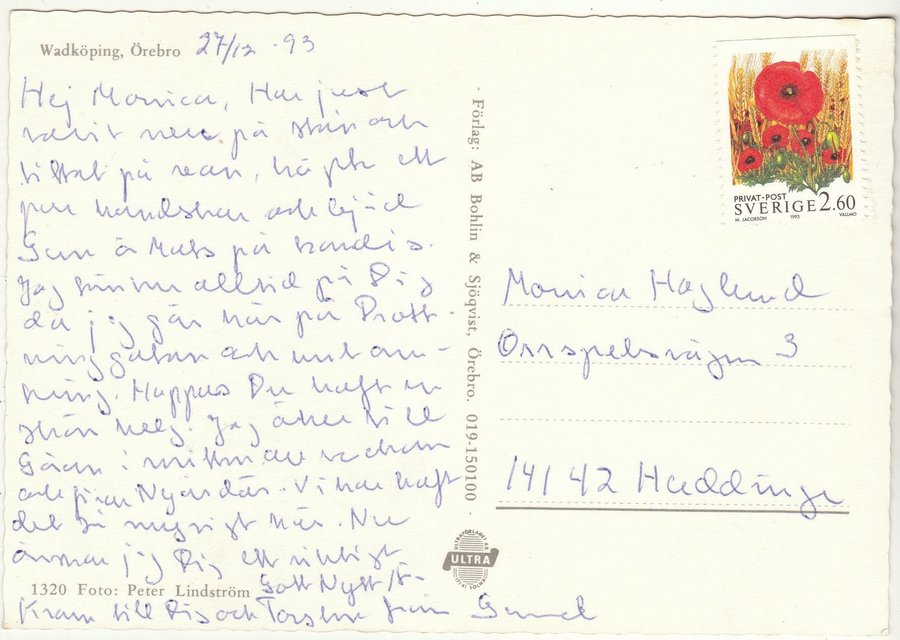 Wadköping, Örebro 27/12 · 93
Hej Monica, Har just
varit nere på stan och
tittat på rean, köpte ett
par handskar och bjöd
Gun å Mats på
Jag tänker alltid på Dig
då jag går här på Drott-
ninggatan och runt om-
kring. Hoppas Du haft en
skön helg. Jag åker till
i mitten av veckan
och firar Nyår där. Vi har haft
det så mysigt här. Nu
önskar jag Dig ett riktigt
Gott Nytt År
Kram till Dig och Torsten från
1320 Foto: Peter Lindström
· Förlag: AB Bohlin & Sjöqvist, Örebro. 019-150100 ·
ULTRA
PRIVAT·POST
SVERIGE 2.60
M. JACOBSON 1993 VALLMO
Monica Haglund
Orrspelsvägen 3
141 42 Huddinge